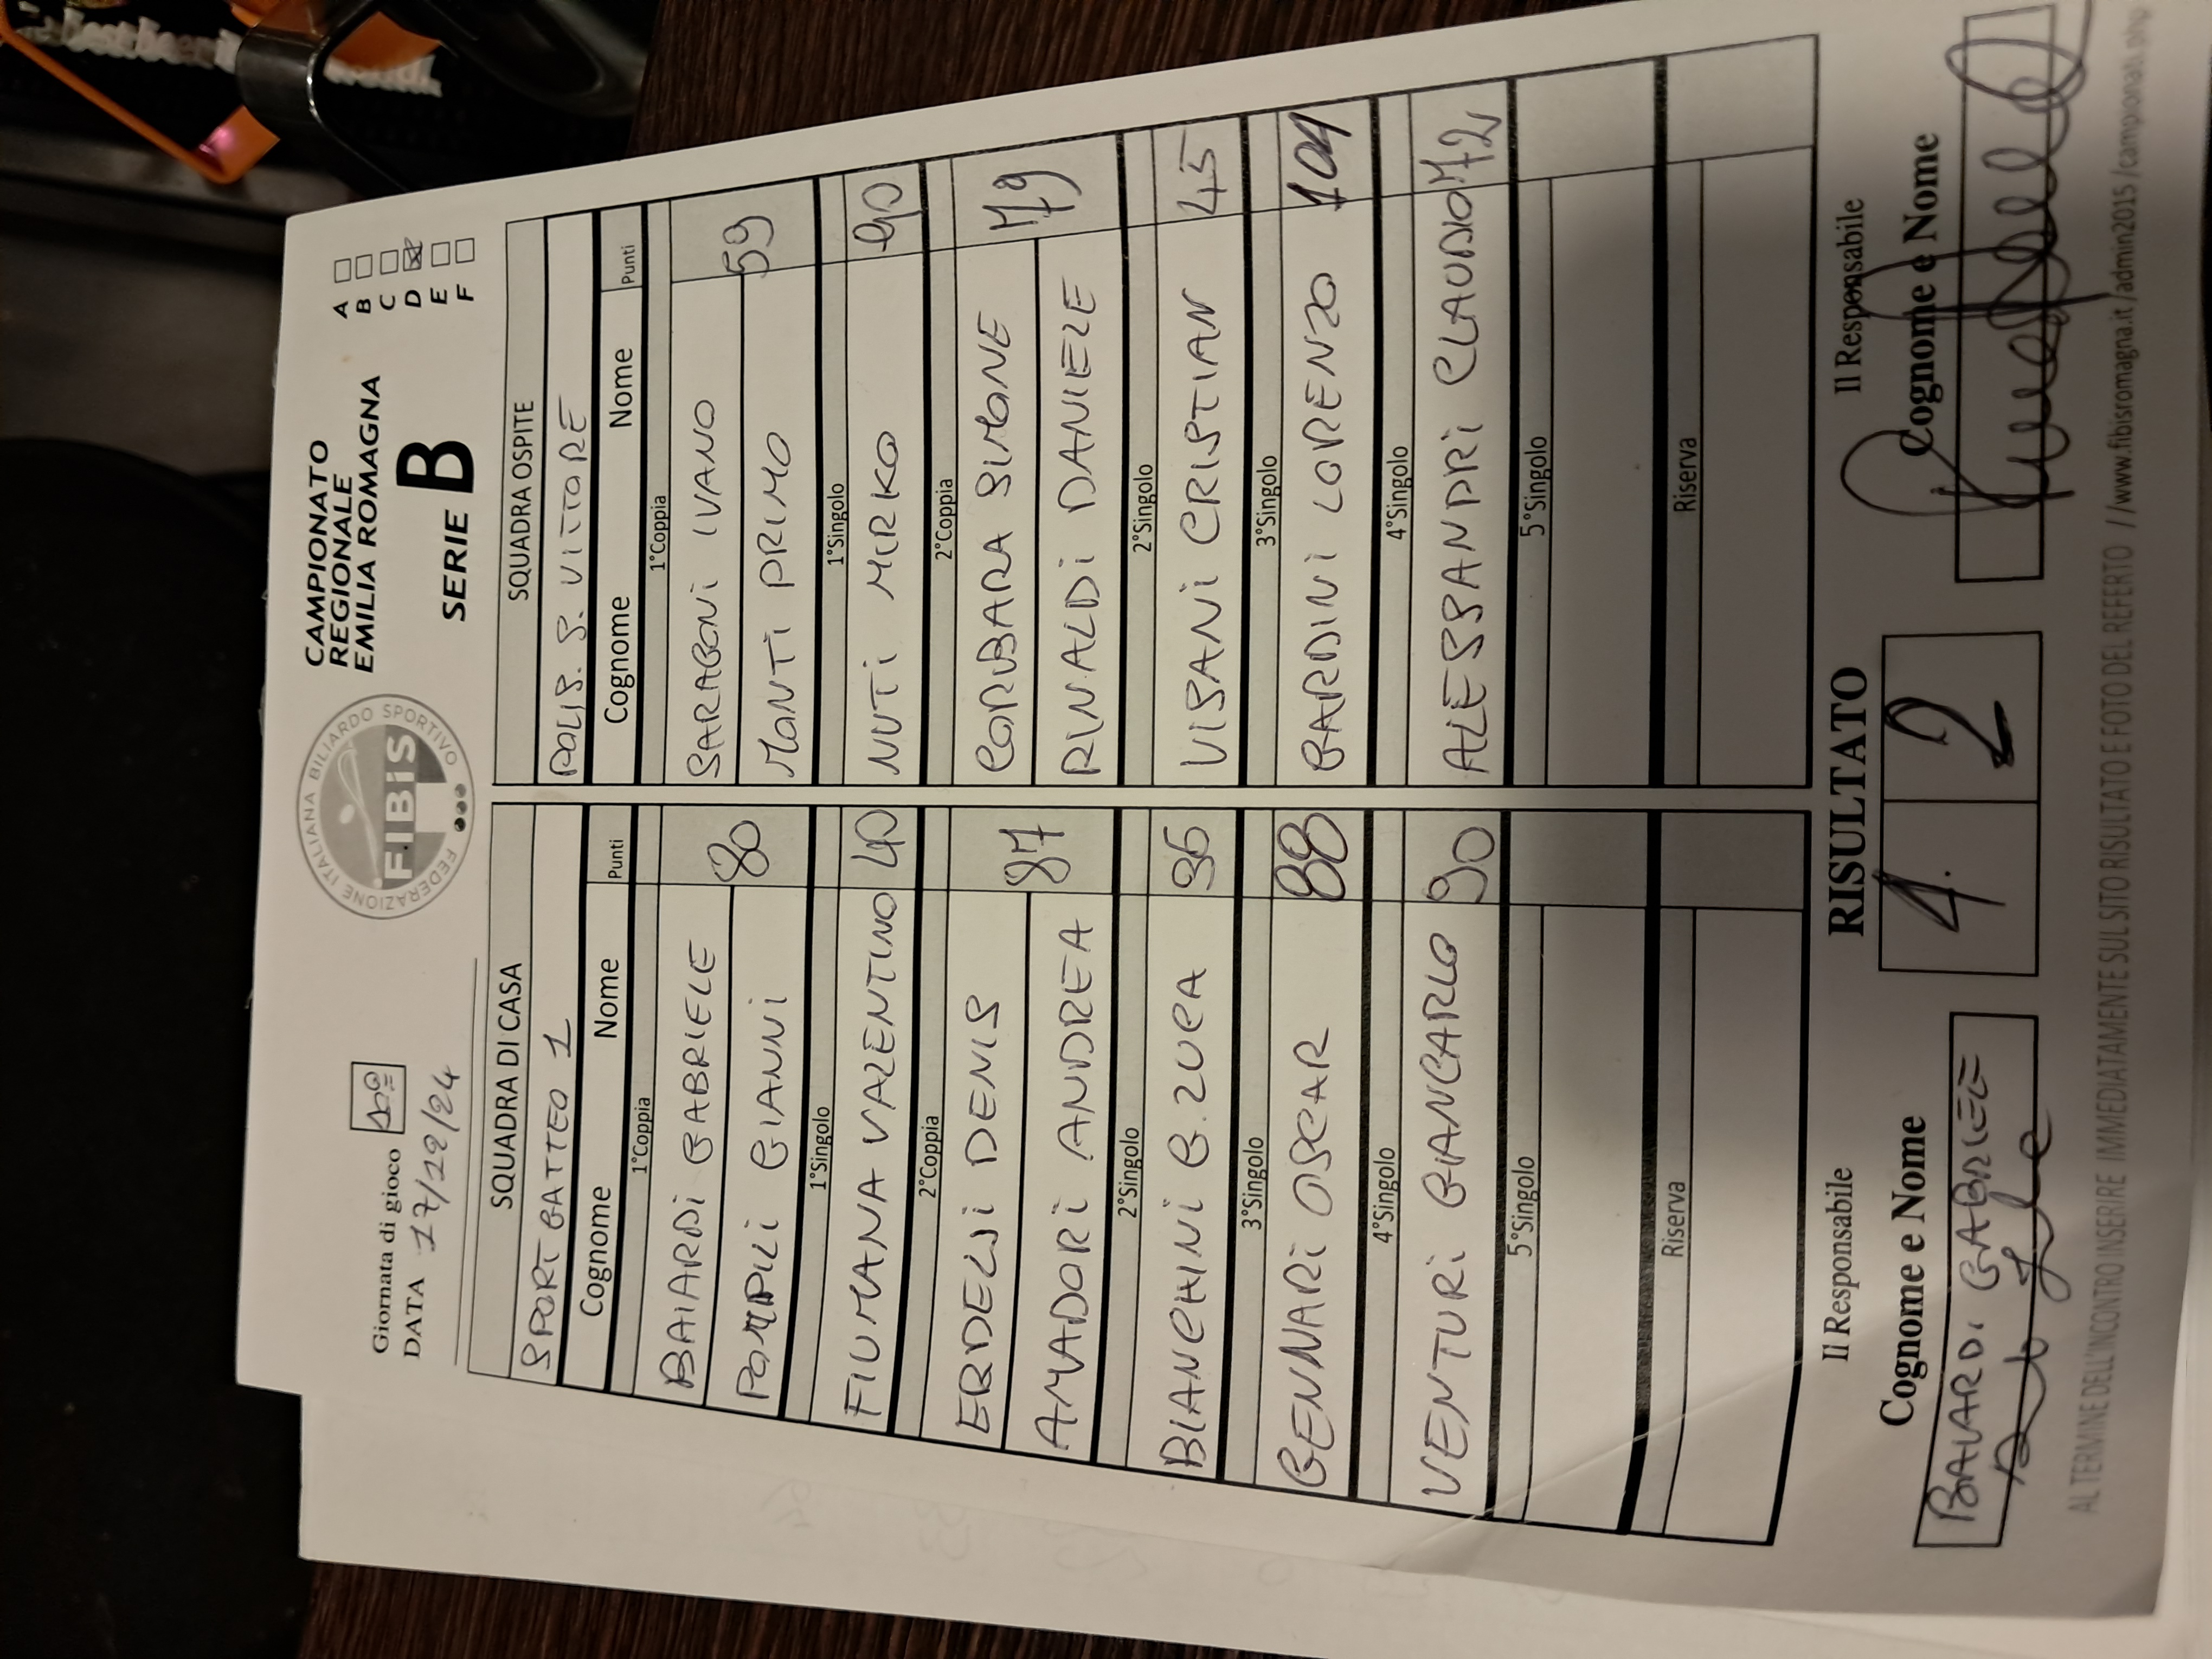 Giornata di gioco
DATA 17/12/24
FEDERAZIONE ITALIANA BILIARDO SPORTIVO
FIBiS
CAMPIONATO
REGIONALE
EMILIA ROMAGNA
SERIE B
A
B
C
D
E
F
SQUADRA DI CASA
SPORT GATTEO 1
Cognome Nome Punti
1°Coppia
BAIARDI GABRIELE
POMPILI GIANNI 80
1°Singolo
FIUMANA VALENTINO 40
2°Coppia
ERDELJI DENIS
AMADORI ANDREA 87
2°Singolo
BIANCHINI G.LUCA 96
3°Singolo
GENNARI OSCAR 88
4°Singolo
VENTURI GIANCARLO 90
5°Singolo
Riserva
SQUADRA OSPITE
POLIS. S. VITTORE
Cognome Nome Punti
1°Coppia
SARAGONI IVANO
MONTI PRIMO 59
1°Singolo
NUTI MIRKO 90
2°Coppia
CORBARA SIMONE
RINALDI DANIELE 79
2°Singolo
VISANI CRISTIAN 45
3°Singolo
BARDINI LORENZO 104
4°Singolo
ALESSANDRI CLAUDIO 72
5°Singolo
Riserva
Il Responsabile
Cognome e Nome
BAIARDI GABRIELE
RISULTATO
4 2
Il Responsabile
Cognome e Nome
AL TERMINE DELL'INCONTRO INSERIRE IMMEDIATAMENTE SUL SITO RISULTATO E FOTO DEL REFERTO //www.fibisromagna.it/admin2015/campionati.php